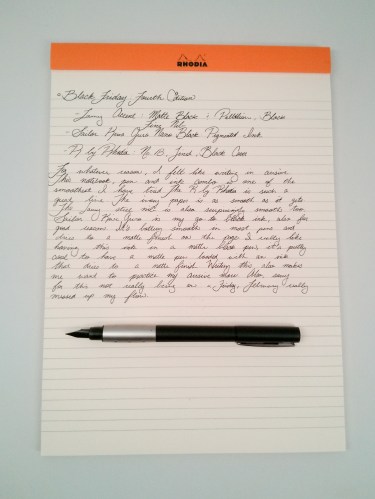 RHODIA
Black Friday Fourth Edition
- Lamy Accent: Matte Black & Palladium, Black
Fine Nib
- Sailor Kiwa Guro Nano Black Pigmented Ink
- R by Rhodia: No. 18, Lined, Black Cover
For whatever reason, I felt like writing in cursive
This notebook, pen and ink combo is one of the
smoothest I have tried. The R by Rhodia is such a
great line. The ivory paper is as smooth as it gets.
The Lamy steel nib is also surprisingly smooth. The
Sailor Kiwa Guro is my go to black ink, also for
good reason. It's buttery smooth in most pens and
dries to a matte finish on the page. I really like
having this ink in a matte black pen, it's pretty
cool to have a matte pen loaded with an ink
that dries to a matte finish. Writing this also makes
me want to practice my cursive more. Also, sorry
for this not really being on a Friday, February really
messed up my flow.